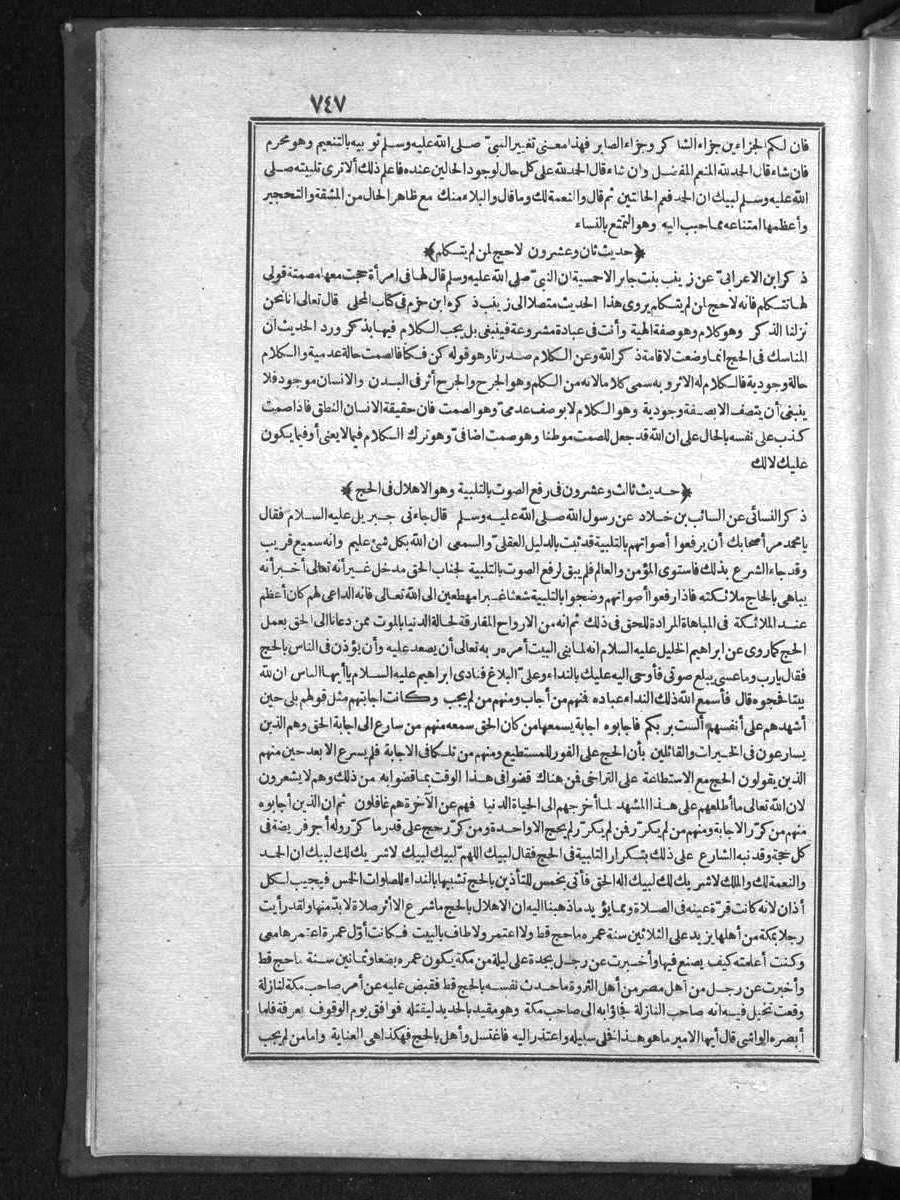 ٧٤٧
فان لكم الجزاءين جزاء الشاكر وجزاء الصابر فهذا معنى تغيير النبيّ صلى الله عليه وسلم ثوبيه بالتنعيم وهو محرم
فان شاء قال الحمد لله المنعم المفضل وان شاء قال الحمد لله على كل حال لوجود الحالين عنده فاعلم ذلك ألا ترى تلبيته صلى
الله عليه وسلم لبيك ان الحمد فعم الحالتين ثم قال والنعمة لك وما قال والبلاء منك مع ظاهر الحال من المشقة والتحجير
وأعظمها امتناعه مما حبب اليه وهو التمتع بالنساء
﴿حديث ثان وعشرون لا حج لمن لم يتكلم﴾
ذكر ابن الاعرابيّ عن زينب بنت جابر الاحمسية ان النبيّ صلى الله عليه وسلم قال لها فى امرأة حجت معها مصمتة قولى
لها تتكلم فانه لا حج لمن لم يتكلم يروى هذا الحديث متصلا الى زينب ذكره ابن حزم فى كتاب المحلى قال تعالى انا نحن
نزلنا الذكر وهو كلام وهو صفة الهية وأنت فى عبادة مشروعة فينبغى بل يجب الكلام فيها بذكر ورد الحديث ان
المناسك فى الحج انما وضعت لاقامة ذكر الله وعن الكلام صدرنا وهو قوله كن فكنا فالصمت حالة عدمية والكلام
حالة وجودية فالكلام له الاثر وبه سمى كلاما لانه من الكلم وهو الجرح والجرح أثر فى البدن والانسان موجود فلا
ينبغى أن يتصف الا بصفة وجودية وهو الكلام لا بوصف عدمىّ وهو الصمت فان حقيقة الانسان النطق فاذا صمت
كذب على نفسه بالحال على ان الله قد جعل للصمت موطنا وهو صمت اضافىّ وهو ترك الكلام فيما لا يعنى أو فيما يكون
عليك لا لك
﴿حديث ثالث وعشرون فى رفع الصوت بالتلبية وهو الاهلال فى الحج﴾
ذكر النسائى عن السائب بن خلاد عن رسول الله صلى الله عليه وسلم قال جاءنى جبريل عليه السلام فقال
يا محمد مر أصحابك أن يرفعوا أصواتهم بالتلبية قد ثبت بالدليل العقلىّ والسمعى ان الله بكل شئ عليم وانه سميع قريب
وقد جاء الشرع بذلك فاستوى المؤمن والعالم فلم يبق لرفع الصوت بالتلبية لجناب الحق مدخل غير أنه تعالى أخبر أنه
يباهى بالحاج ملائكته فاذا رفعوا أصواتهم وضجوا بالتلبية شعثا غبرا مهطعين الى الله تعالى فانه الداعى لهم كان أعظم
عند الملائكة فى المباهاة المرادة للحق فى ذلك ثم انه من الارواح المفارقة لحالة الدنيا بالموت ممن دعانا الى الحق بعمل
الحج كما روى عن ابراهيم الخليل عليه السلام انه لما بنى البيت أمره ربه تعالى أن يصعد عليه وأن يؤذن فى الناس بالحج
فقال يارب وما عسى يبلغ صوتى فأوحى اليه عليك بالنداء وعلىّ البلاغ فنادى ابراهيم عليه السلام يا أيها الناس ان لله
بيتا فحجوه قال فأسمع الله ذلك النداء عباده فمنهم من أجاب ومنهم من لم يجب وكانت اجابتهم مثل قولهم بلى حين
أشهدهم على أنفسهم ألست بربكم فاجابوه اجابة يسمعها من كان الحق سمعه منهم من سارع الى اجابة الحق وهم الذين
يسارعون فى الخيرات والقائلين بأن الحج على الفور للمستطيع ومنهم من تلكأ فى الاجابة فلم يسرع الا بعد حين منهم
الذين يقولون الحج مع الاستطاعة على التراخى فمن هناك قضوا فى هذا الوقت بما قضوا به من ذلك وهم لا يشعرون
لان الله تعالى ما أطلعهم على هذا المشهد لما أخرجهم الى الحياة الدنيا فهم عن الآخرة هم غافلون ثم ان الذين أجابوه
منهم من كرّر الاجابة ومنهم من لم يكرّر فمن لم يكرّر لم يحج الا واحدة ومن كرّر حج على قدر ما كرّر وله أجر فريضة فى
كل حجة وقد نبه الشارع على ذلك بتكرار التلبية فى الحج فقال لبيك اللهمّ لبيك لبيك لا شريك لك لبيك ان الحمد
والنعمة لك والملك لا شريك لك لبيك اله الحق فأتى بخمس للتأذين بالحج تشبيها بالنداء للصلوات الخمس فيجيب لكل
أذان لانه كانت قرّة عينه فى الصلاة ومما يؤيد ما ذهبنا اليه ان الاهلال بالحج ما شرع الا أثر صلاة لا بدّ منها ولقد رأيت
رجلا بمكة من أهلها يزيد على الثلاثين سنة عمره ما حج قط ولا اعتمر ولا طاف بالبيت فكانت أوّل عمرة اعتمرها معى
وكنت أعلمته كيف يصنع فيها وأخبرت عن رجل بجدة على ليلة من مكة يكون عمره بضعا وثمانين سنة ما حج قط
وأخبرت عن رجل من أهل مصر من أهل الثروة ما حدث نفسه بالحج قط فقبض عليه عن أمر صاحب مكة لنازلة
وقعت تخيل فيه انه صاحب النازلة فجاؤا به الى صاحب مكة وهو مقيد بالحديد ليقتله فوافق يوم الوقوف بعرفة فلما
أبصره الواشى قال أيها الامير ما هو هذا فخلى سبيله واعتذر اليه فاغتسل وأهل بالحج فهكذا هى العناية واما من لم يجب